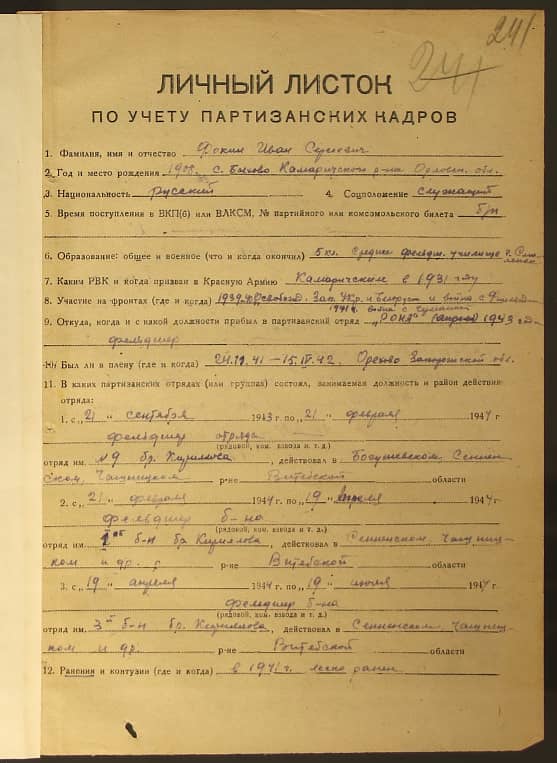 241
241
ЛИЧНЫЙ ЛИСТОК
ПО УЧЕТУ ПАРТИЗАНСКИХ КАДРОВ
1. Фамилия, имя и отчество Фокин Иван Сергеевич
2. Год и место рождения 1908 с. Быхово Камаричского р-на Орловск. обл.
3. Национальность русский 4. Соцположение служащий
5. Время поступления в ВКП(б) или ВЛКСМ, № партийного или комсомольского билета б/п
6. Образование: общее и военное (что и когда окончил) 5 кл. Среднее фельдш. училище г. Смоленск
7. Каким РВК и когда призван в Красную Армию Камаричским в 1931 году
8. Участие на фронтах (где и когда) 1939 г. Освобожд. Зап. Укр. и Белорус и война с Финлянд.
1941 г. война с
9. Откуда, когда и с какой должности прибыл в партизанский отряд "РОНА" 1943
фельдшер
10. Был ли в плену (где и когда) 24.IX.41 — 15.IV.42. Орехово Запорожской обл.
11. В каких партизанских отрядах (или группах) состоял, занимаемая должность и район действия
отряда:
1. с „21" сентября 1943 г. по „21" февраля 1944 г
фельдшер отряда
(рядовой, ком. взвода и т. д.)
отряд им. №9 бр. Кириллова, действовал в Богушевском Сеннен-
ском, Чашницком р-не Витебской области
2. с „21" февраля 1944 г. по „19" апреля 1944 г
фельдшер б-на
(рядовой, ком. взвода и т. д.)
отряд им. б-н бр Кириллова, действовал в Сенненском, Чашниц-
ком и др. р-не Витебской области
3. с „19" апреля 1944 г. по „19" июля 1944 г
фельдшер б-на
(рядовой, ком. взвода и т. д.)
отряд им. 3й б-н бр. Кириллова, действовал в Сенненском, Чашниц-
ком и др. р-не Витебской области
12. Ранения и контузии (где и когда) в 1941 г. легко ранен